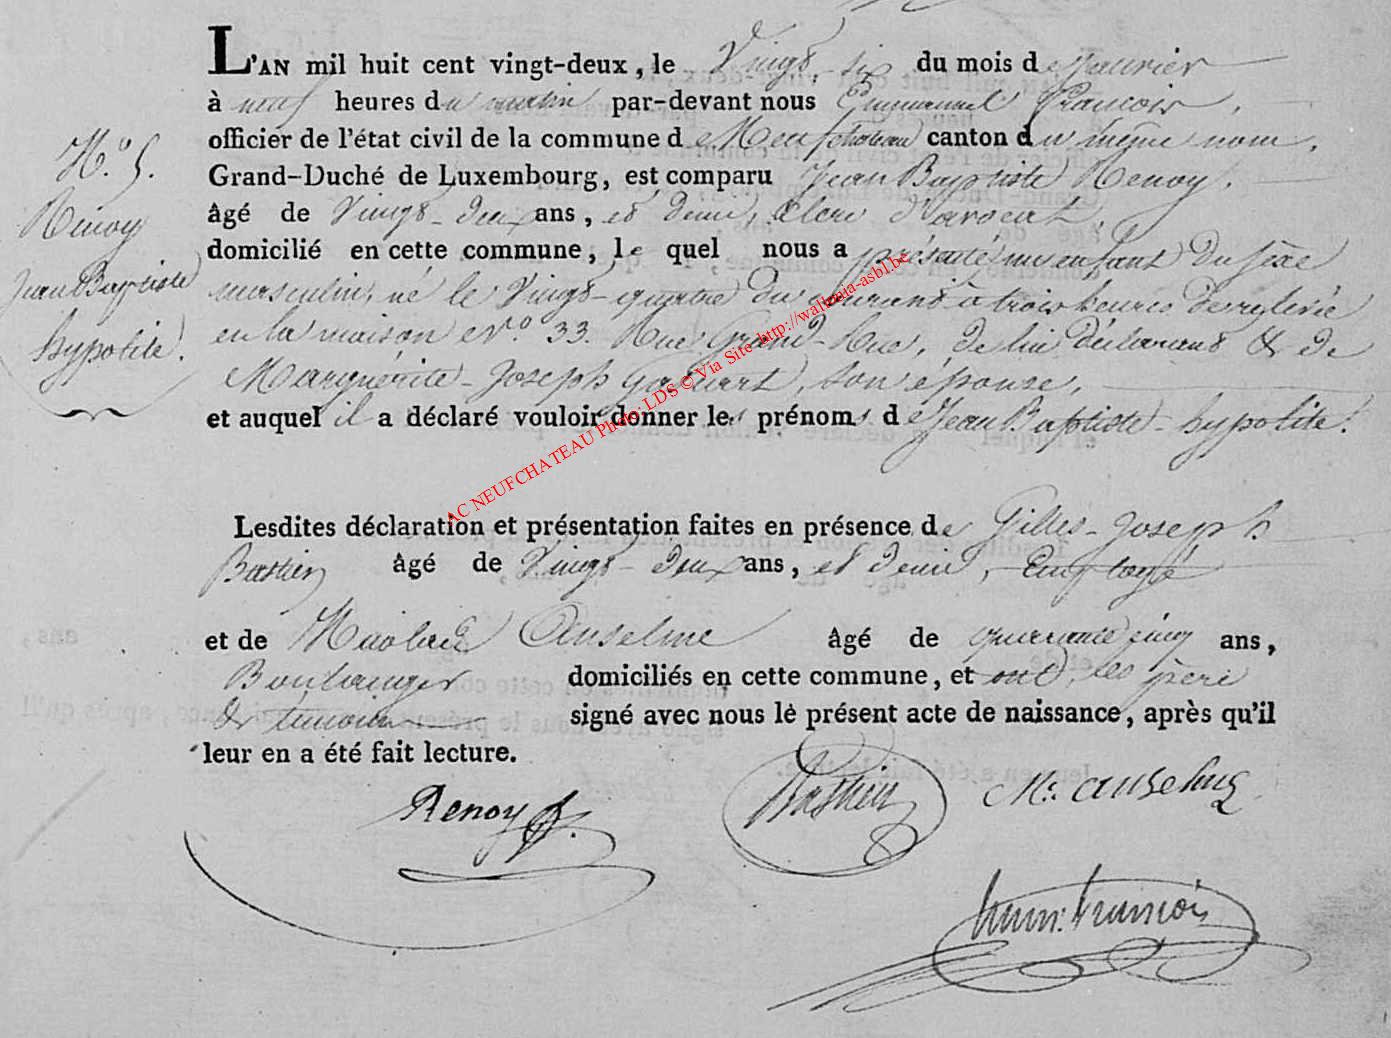 L'AN mil huit cent vingt-deux, le Vingt-six du mois de Janvier
à neuf heures du matin par-devant nous Emmanuel François,
officier de l'état civil de la commune de Neufchateau canton du même nom,
Grand-Duché de Luxembourg, est comparu Jean Baptiste Renoy,
âgé de Vingt-deux ans, et demi, Clerc d'avocat,
domicilié en cette commune, lequel nous a présenté un enfant du sexe
masculin, né le Vingt-quatre du courant à trois heures de relevée
en la maison N.° 33. Rue Grand-Rue, de lui déclarant & de
Marguérite-Joseph, son épouse,
et auquel il a déclaré vouloir donner les prénoms de Jean Baptiste-hypolite.
N.° 5.
Renoy
Jean Baptiste
hypolite.
Lesdites déclaration et présentation faites en présence de Gilles-Joseph
Bastien âgé de Vingt-deux ans, et demi, Employé
et de Nicolas Anselme âgé de quarante cinq ans,
Boulanger domiciliés en cette commune, et ont, les père
& témoins signé avec nous le présent acte de naissance, après qu'il
leur en a été fait lecture.
Renoy
Bastien
N: anselme
Emm: François
AC NEUFCHATEAU Photo: LDS © Via Site http://wallonia-asbl.be